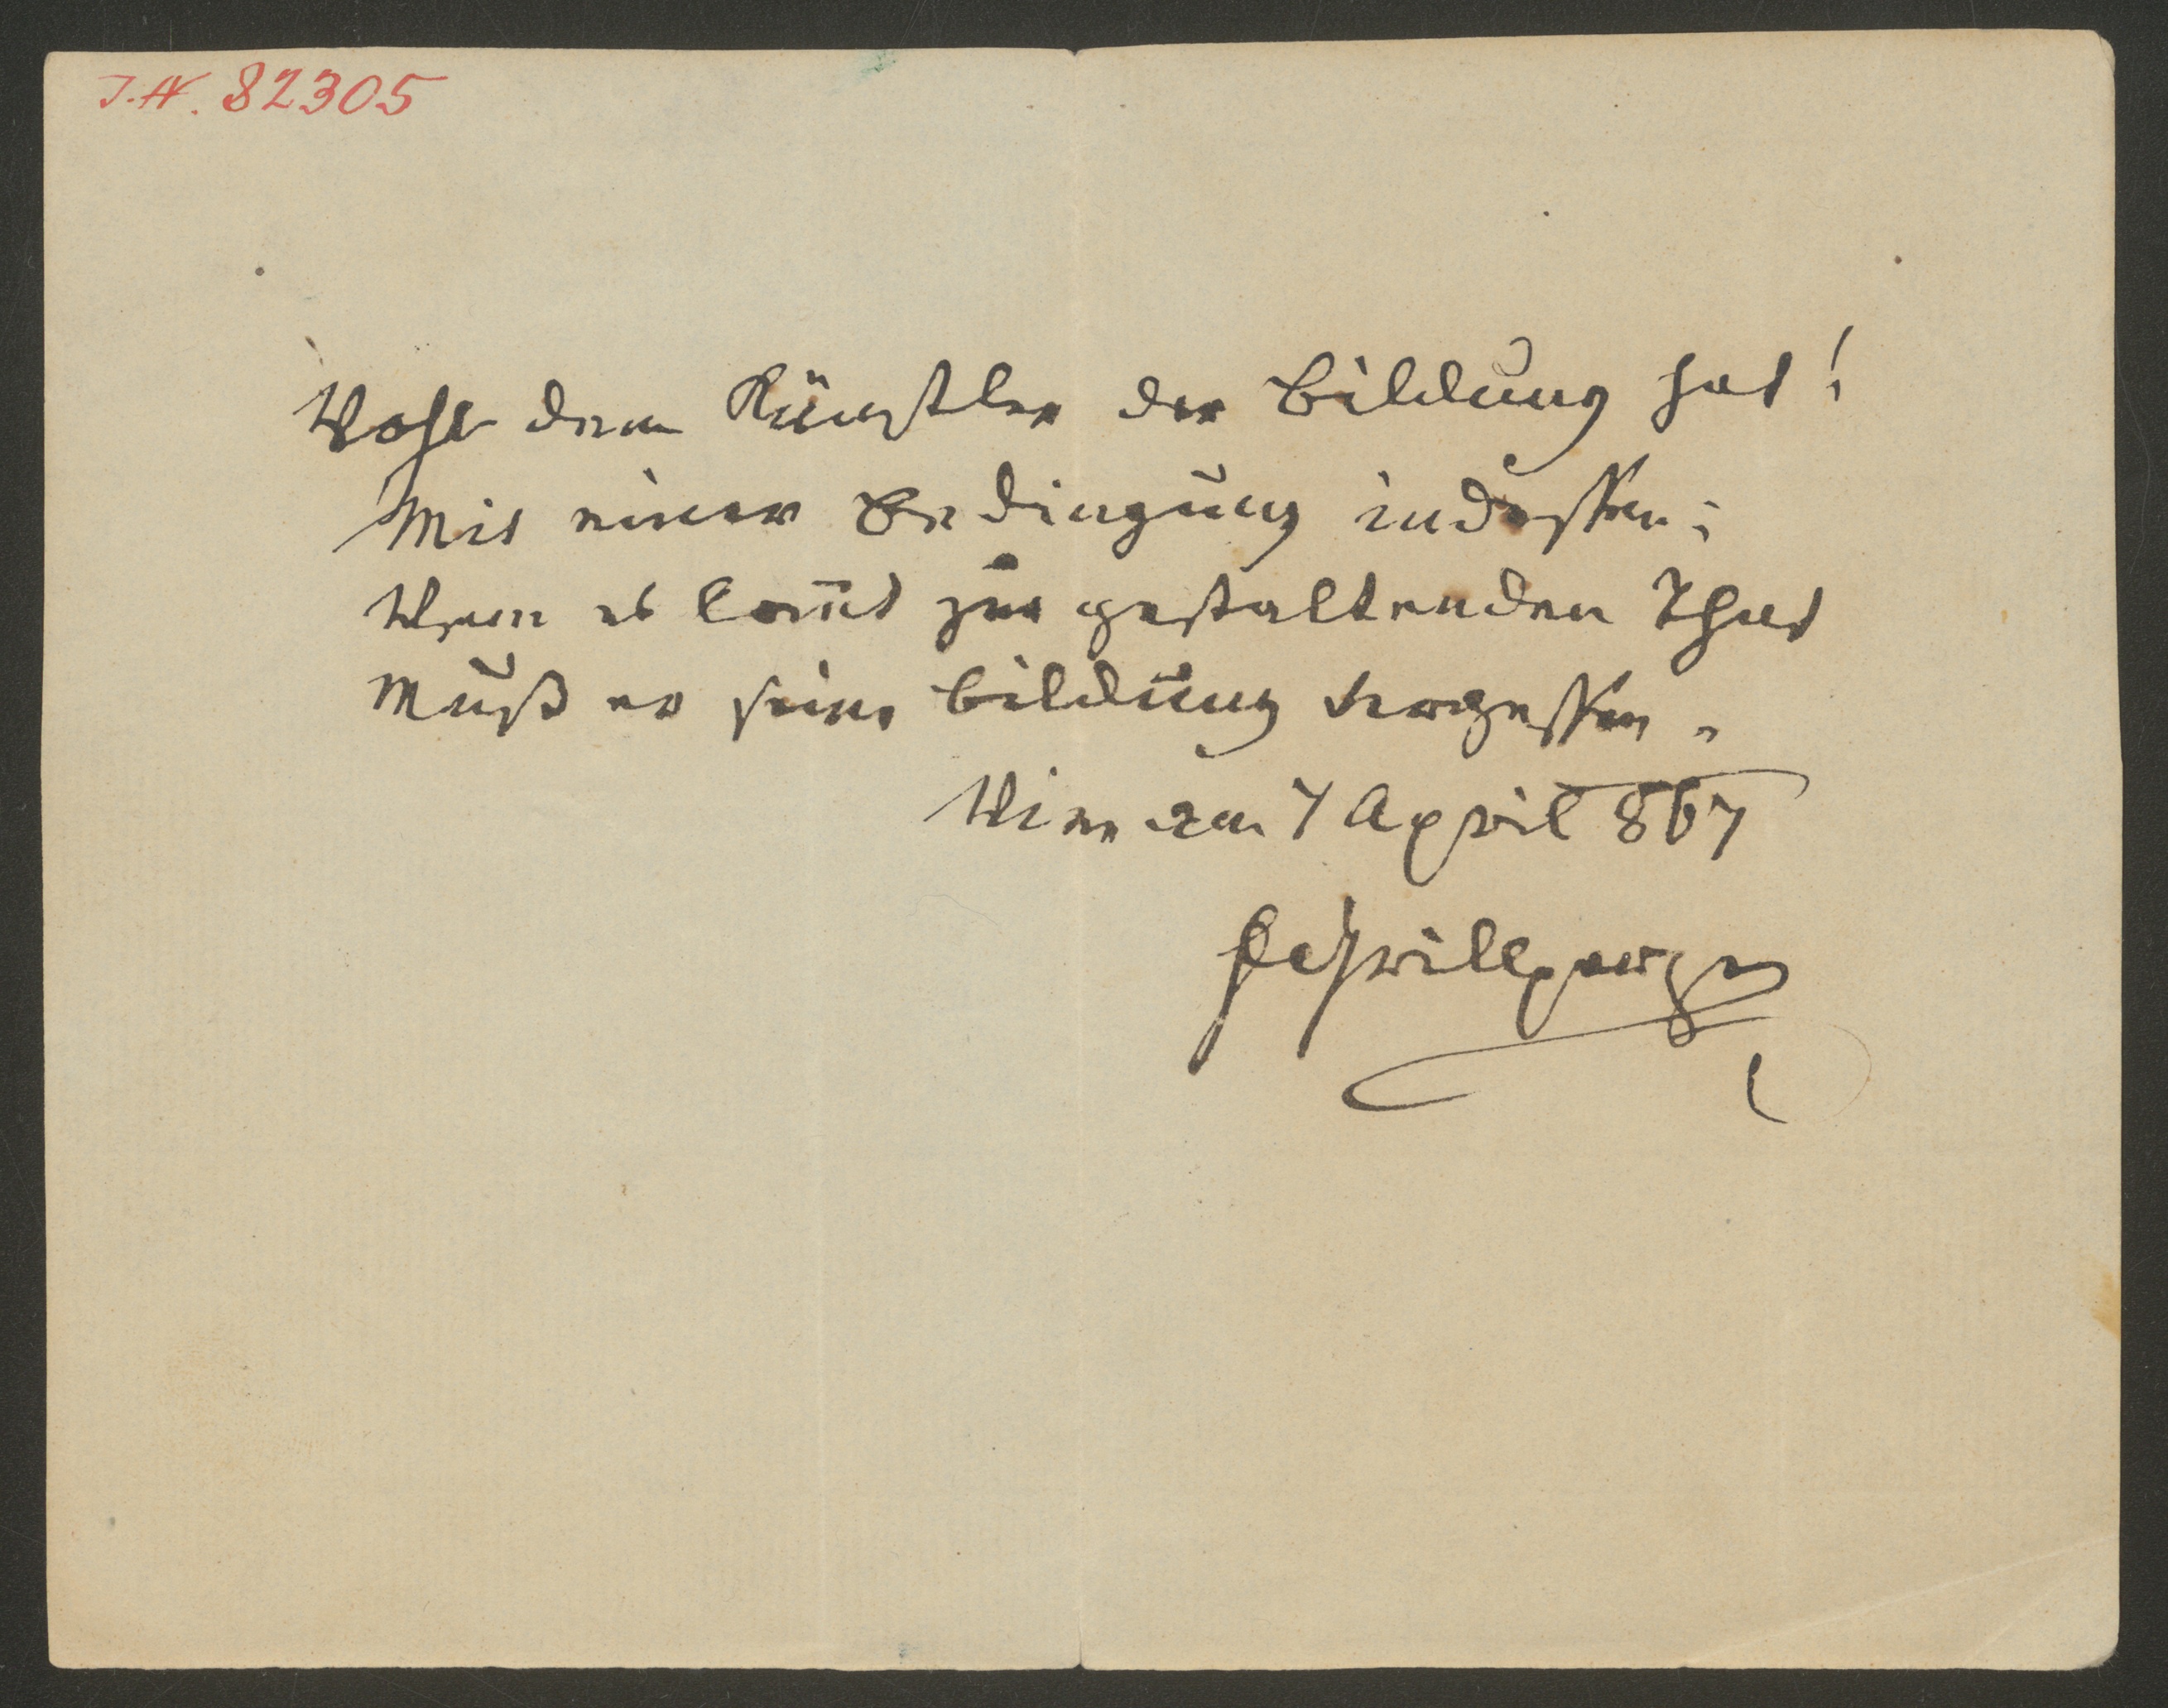 J.N. 82305
Wohl dem Künstler der Bildung hat!
Mit einer Bedingung indessen;
Wenn es kom̅t zur gestaltenden That
Muß er seine Bildung vergessen.
Wien am 7 April 867
FGrillparzer